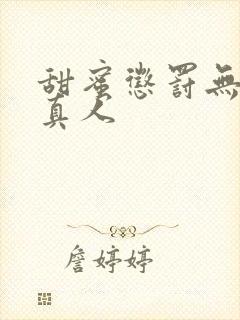 甜蜜懲罰無
真人
詹婷婷